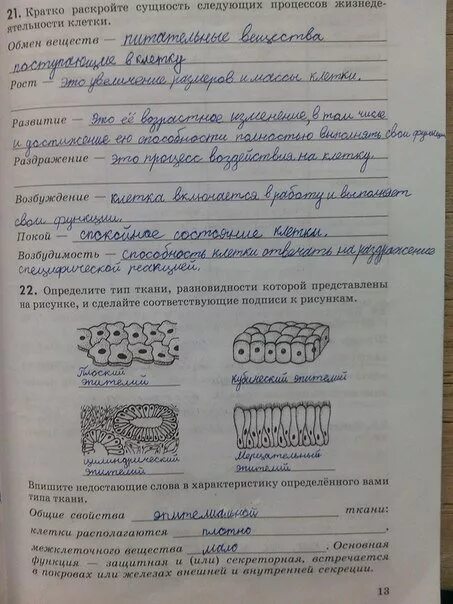 21. Кратко раскройте сущность следующих процессов жизнеде-
ятельности клетки.
Обмен веществ — питательные вещества
поступающие в клетку
Рост — это увеличение размеров и массы клетки.
Развитие — Это её возрастное изменение, в том числе
и достижение ею способности полностью выполнять свои функции
Раздражение — это процесс воздействия на клетку.
Возбуждение — клетка включается в работу и выполняет
свои функции.
Покой — спокойное состояние клетки.
Возбудимость — способность клетки отвечать на раздражение
специфической реакцией.
22. Определите тип ткани, разновидности которой представлены
на рисунке, и сделайте соответствующие подписи к рисункам.
Плоский
эпителий
кубический эпителий
цилиндрический
эпителий
Мерцательный
эпителий
Впишите недостающие слова в характеристику определённого вами
типа ткани.
Общие свойства эпителиальной ткани:
клетки располагаются плотно ,
межклеточного вещества мало . Основная
функция — защитная и (или) секреторная, встречается
в покровах или железах внешней и внутренней секреции.
13